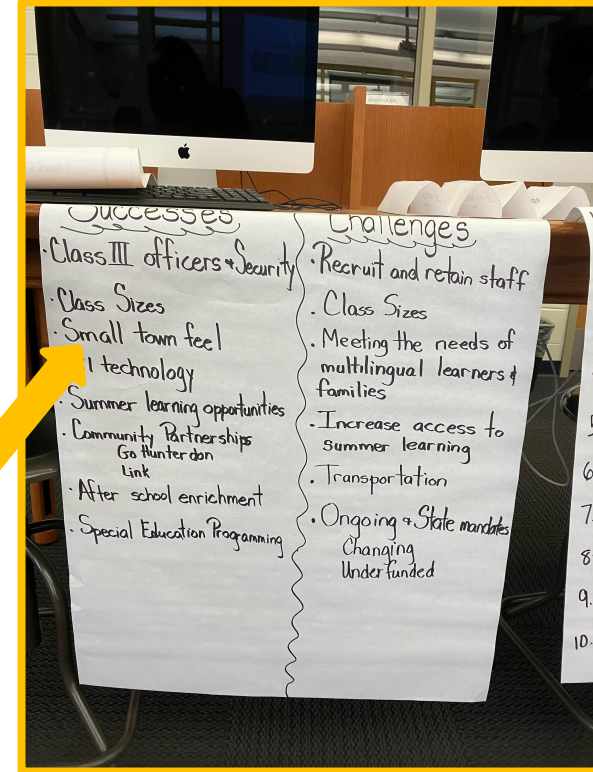 Successes
·Class III officers & Security
·Class Sizes
·Small town feel
technology
·Summer learning opportunities
·Community Partnerships
Go Hunterdon
Link
·After school enrichment
·Special Education Programming
Challenges
·Recruit and retain staff
·Class Sizes
·Meeting the needs of
multilingual learners &
families
·Increase access to
summer learning
·Transportation
·Ongoing & State mandates
Changing
Underfunded
6
7.
8
9.
10.